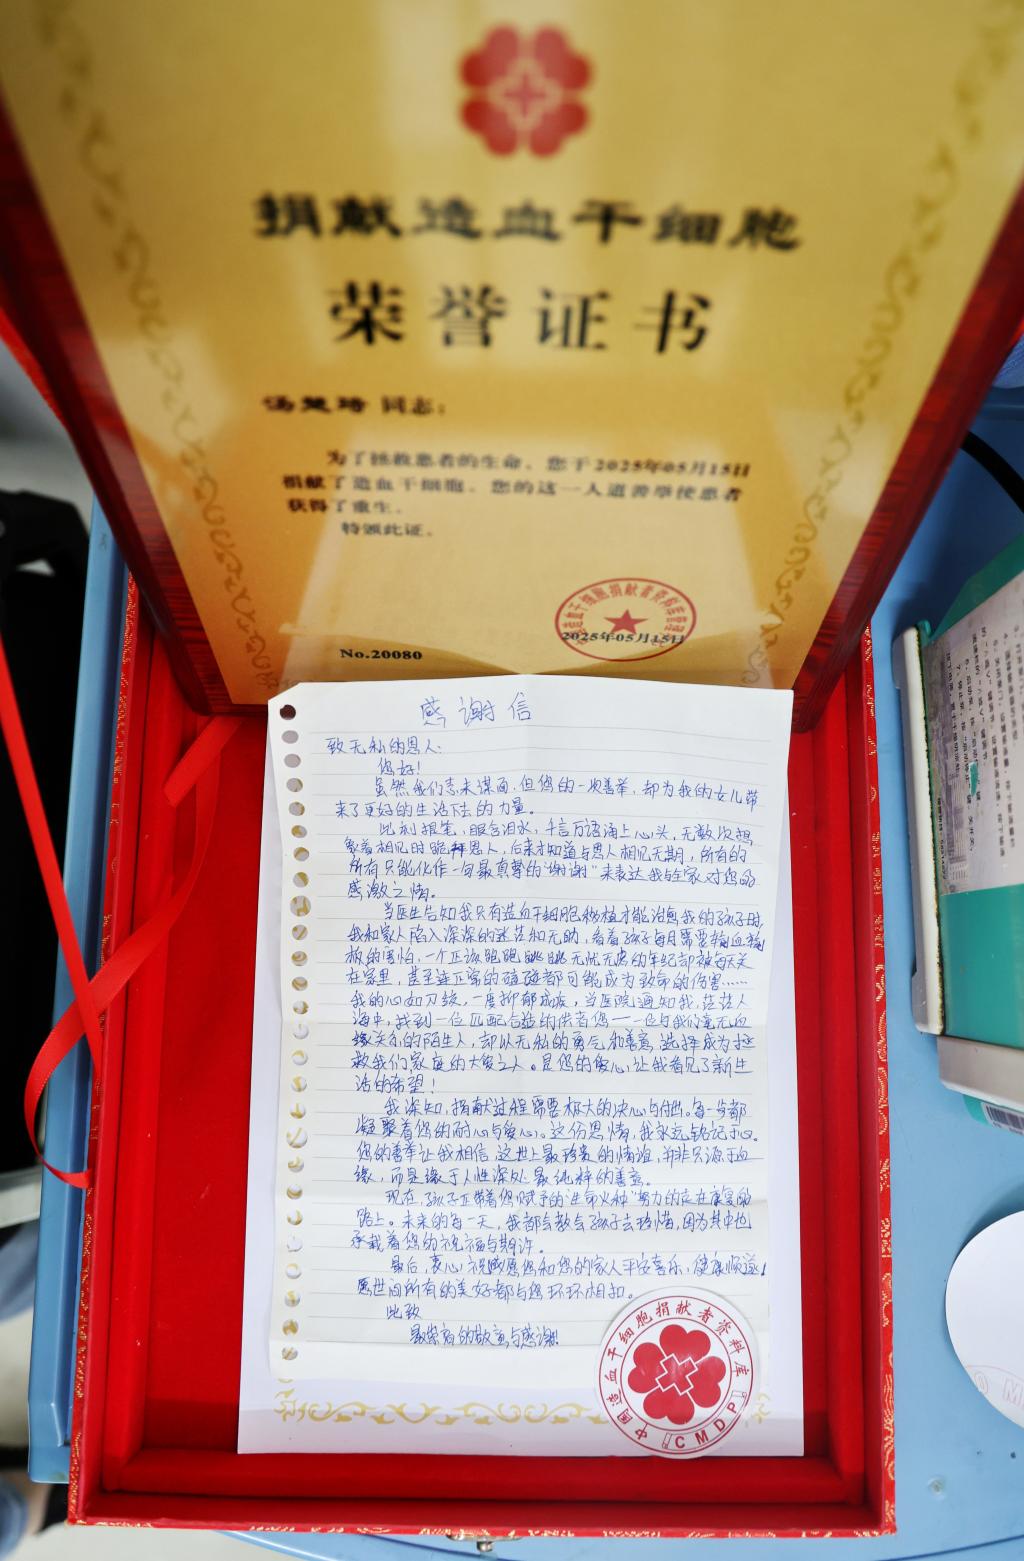 捐献造血干细胞
荣誉证书
同志：
为了拯救患者的生命，您于2025年05月15日
捐献了造血干细胞。您的这一人道善举使患者
获得了重生。
特颁此证。
2025年05月15日
No.20080
感谢信
致无私的恩人：
您好！
虽然我们素未谋面，但您的一次善举，却为我的女儿带
来了更好的生活下去的力量。
此刻提笔，眼含泪水，千言万语涌上心头，无数次想
象着相见时跪拜恩人，后来才知道与恩人相见无期，所有的
所有只能化作一句最真挚的“谢谢”来表达我与全家对您的
感激之情。
当医生告知我只有造血干细胞移植才能治愈我的孩子时，
我和家人陷入深深的迷茫和无助，看着孩子每月需要输血输
板的害怕，一个正该跑跑跳跳无忧无虑的年纪却被每天关
在家里，甚至连正常的磕碰都可能成为致命的伤害……
我的心如刀绞，一度抑郁成疾，当医院通知我，茫茫人
海中，找到一位匹配合适的供者您——一位与我们毫无血
缘关系的陌生人，却以无私的勇气和善意，选择成为拯
救我们家庭的大爱之人。是您的爱心，让我看见了新生
活的希望！
我深知，捐献过程需要极大的决心与付出。每一步都
凝聚着您的耐心与爱心。这份恩情，我永远铭记于心。
您的善举让我相信，这世上最珍贵的情谊，并非只源于血
缘，而是缘于人性深处最纯粹的善意。
现在，孩子正带着您赋予的“生命火种”努力的走在康复的
路上。未来的每一天，我都会教会孩子去珍惜，因为其中也
承载着您的祝福与期许。
最后，衷心祝愿您和您的家人平安喜乐，健康顺遂！
愿世间所有的美好都与您环环相扣。
此致
最崇高的敬意与感谢！
中国造血干细胞捐献者资料库
CMDP